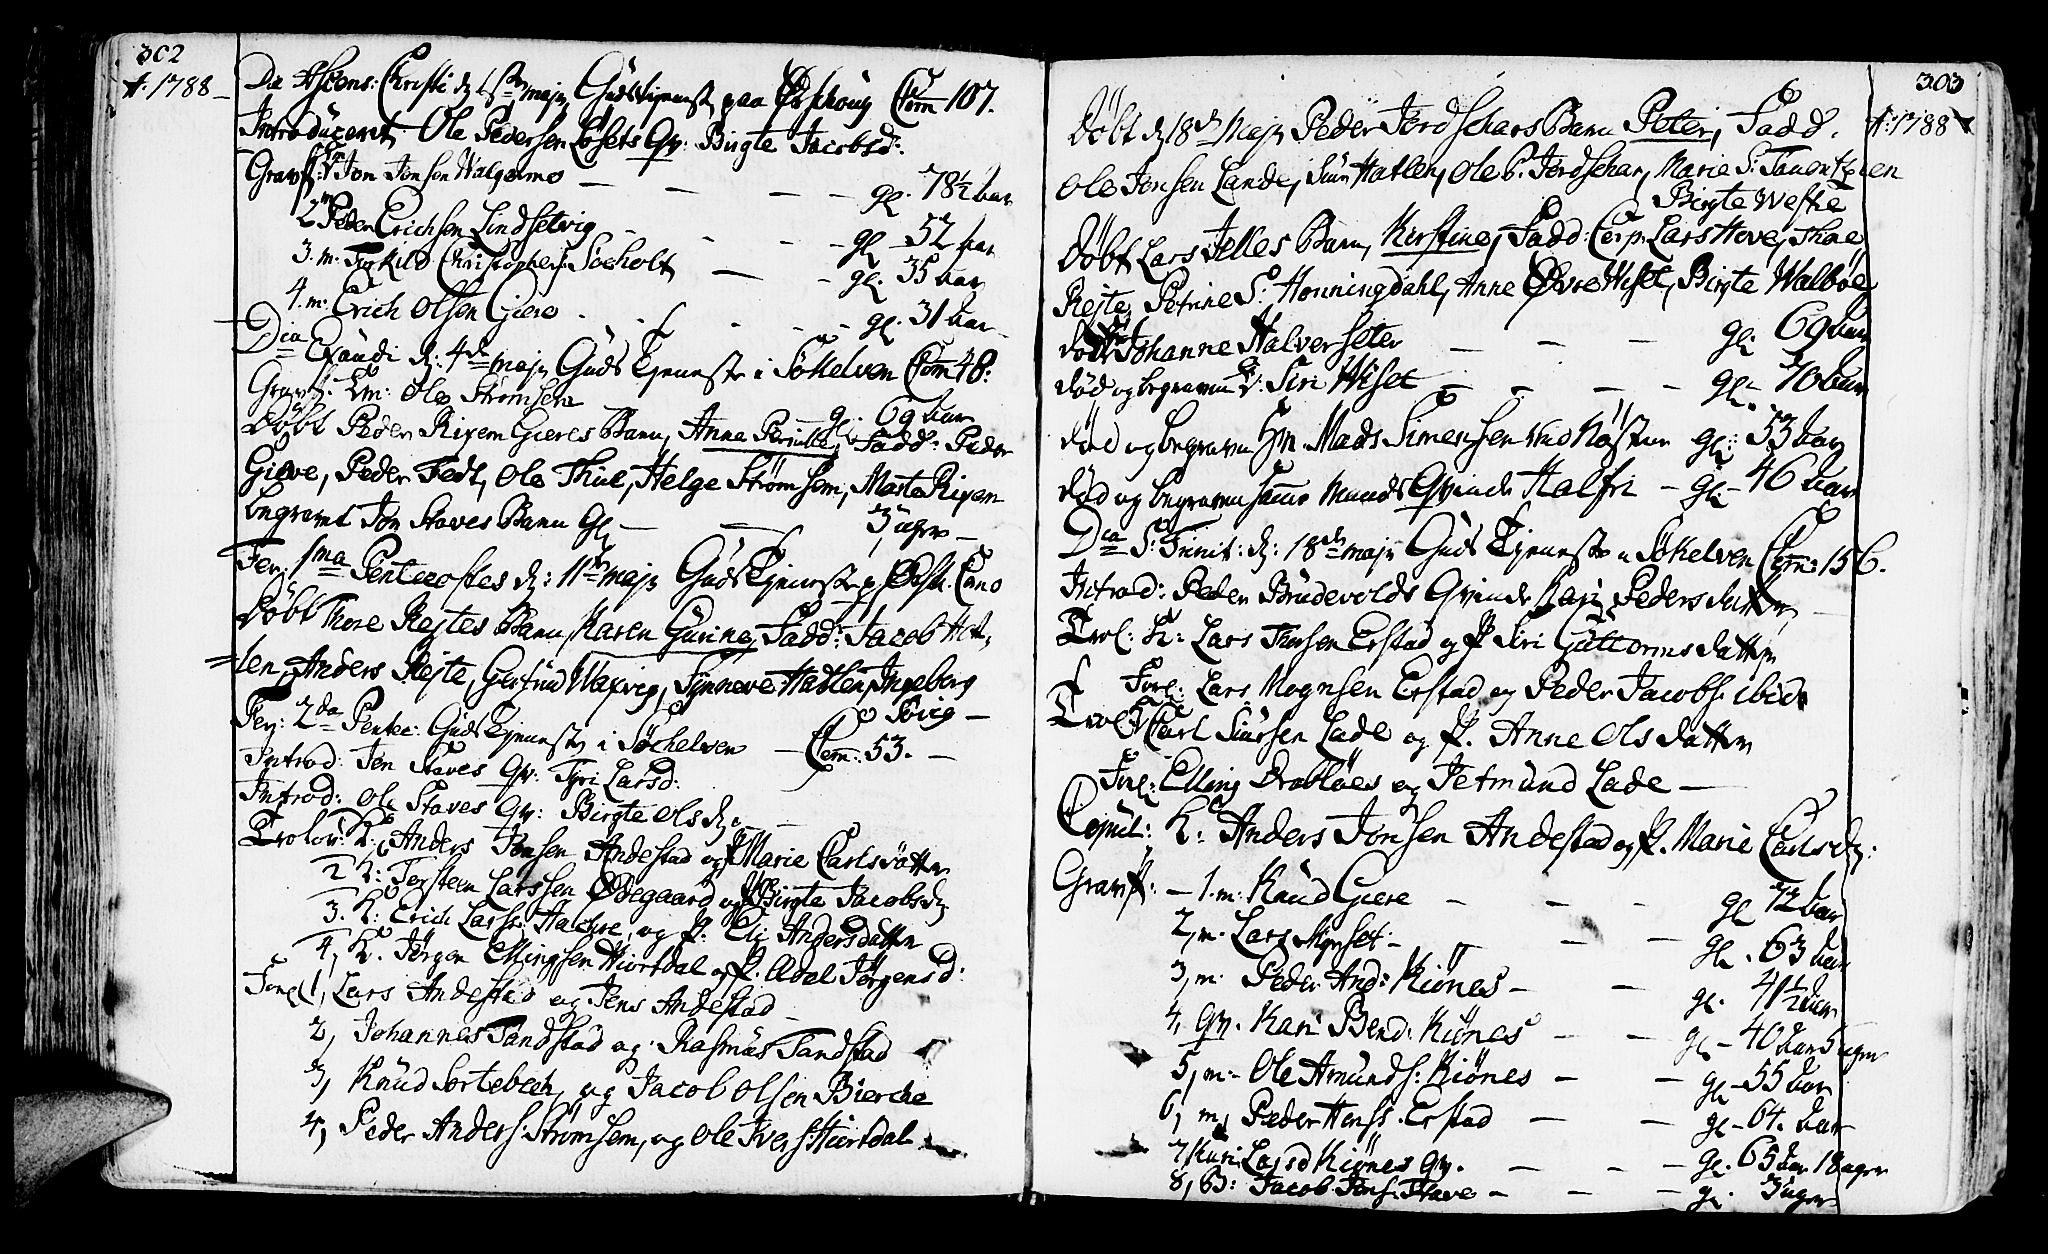 302
A: 1788
Die Ascens: Christi d. 1ste maj, Gudstjenest paa Ørschoug Com 107.
Introduceret. Ole Pedersen Løsets Qv: Birgte Jacobsd:
Gravf: 1 m Jon Jonsen Walgermo — — — gl. 78½ aar
2 m Peder Erichsen Lindsetvig — — — gl. 52 aar
3. m: Torkild Christophers: Søeholt — — gl. 35 aar
4. m: Erich Olsen Giere — — gl. 31 aar
Dca Exaudi d: 4de maj Guds Tjeneste i Søkelven Com 48:
Gravf: Em: Ole Strømsem gl. 69 aar
Døbt Peder Rixem Gieres Barn, Anne Pernille, Fadd: Peder
Gieve, Peder Fedt, Ole Thue, Helge Strømsem, Marte Rixem
begravet Jon Staves Barn gl — — 3 uger —
Fer: 1ma Pentecostes d: 11te maj Guds Tjeneste p Ørsk:
Døbt Thore Rejtes Barn, Karen Gurine, Fadd: Jacob Hat-
=len, Anders Rejte, Giertrud Waxvig, Synneve Hatlen, Ingeborg
Søvig —
Fer: 2da Pentec: Guds Tjeneste i Søchelven — Com: 53. —
Introd: Jon Staves Qv: Tyri Larsd:
Introd: Ole Staves Qv: Birgte Olsd:
Trolov: K: Anders Jonsen Andestad og P Marie Carlsdatter
2 K: Torsteen Larssen Ødegaard og P Birgte Jacobsd
3. K: Erich Larss: Hachre, og P: Eli Andersdatter
4, K. Jørgen Ellingsen Hiortdal og P. Adel Jørgensd:
Forl: 1, Lars Andestad og Jens Andestad —
2, Johannes Tandstad og Rasmus Tandstad
3, Knud Sortebech, og Jacob Olsen Bierche
4, Peder Anders: Strømsem, og Ole Ivers: Hiortdal
303
A: 1788
Døbt d 18de Maj Peder Jordschars Barn Peter, Fadd.
Ole Jonsen Lande, Hatlen, Ole P. Jordschar, Marie S: Tauentzien
Birgte Wefre
Døbt Lars Jelles Barn, Kirstine, Fadd: Corp. Lars Hove, Thore
Rejte, Petrine S: Honningdahl, Anne Øvre Wiset, Birgte Walbøe
død Johanne Halversæter — — gl. 69 aar
død og begraven E: Siri Wiset — — gl. 70 aar
død og begraven Hm. Mads Simensen gl: 53 aar
død og begraven samme Mands Qvinde Halfri — gl: 46 aar
Dca S: Trinit: d: 18de maj Guds Tjeneste i Søkelven Com: 156.
Introd: Peder Brudevolds Qvinde Kari Pedersdatter
Trol: K: Lars Thorsen Erstad og P Siri Guttormsdatter
Forl: Lars Mognsen Erstad og Peder Jacobs: ibid:
Trol: K Carl Siursen Lade og P. Anne Olsdatter
Forl: Elling Drabløes og Jetmund Lade —
Copul: K: Anders Jonsen Andestad og P. Marie Carlsd:
Gravf: — 1. m: Knud Giere — — gl 72 aar
2, m. Lars Mynset — — gl. 63 aar
3, m Peder And: Kiønes — — gl. 41½ aar
4, qv. Kari Bend: Kiønes — gl — 40 aar 5 uger
5, m: Ole Amunds: Kiønes — — gl — 55 aar
6, m, Peder Hanss. Erstad — — gl — 64. aar
7 Kari Larsd Kiønes Qv. — — gl. 65 aar 18 uger
8, B: Jacob Jons: Stave — — gl. 3 uger